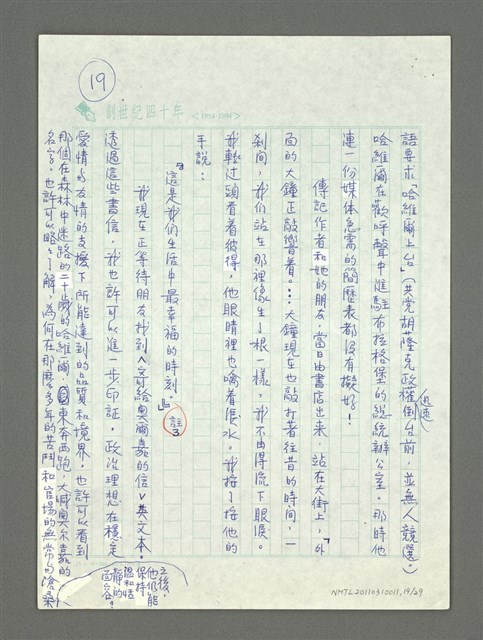 19
創世紀四十年 <1954-1994>
語要求「哈維爾上台」(共党胡薩克政權倒台前，並無人競選。)
迅速
哈維爾在歡呼聲中進駐布拉格堡的總統辦公室。那時他
連一份媒体急需的簡歷表都沒有擬好！
傳記作者和她的朋友，當日由書店出來，站在大街上，「外
面的大鐘正敲響着。…大鐘現在也敲打著往昔的時間，一
剎间，我们站在那裡像生了根一樣，我不由得流下眼淚。
我轉过頭看着彼得，他眼睛裡也噙着淚水。我握了握他的
手說：
『這是我们生活中最幸福的時刻。』」
註3
我現在正等待朋友找到＜寄給奧爾嘉的信＞英文本。
透過這些書信，我也許可以進一步印証，政治理想在穩定
愛情与友情的支援下所能達到的品質和境界，也許可以看到
那個在森林中迷路的二十歲的哈維爾，東奔西跑，大喊奧尔嘉的
名字。也許可以略々了解，為何在那麼多年的苦鬥和官場的無常的滄桑
之後，
他仍能
保持
溫和恬
靜的
面容。
NMTL20110310011,19/29